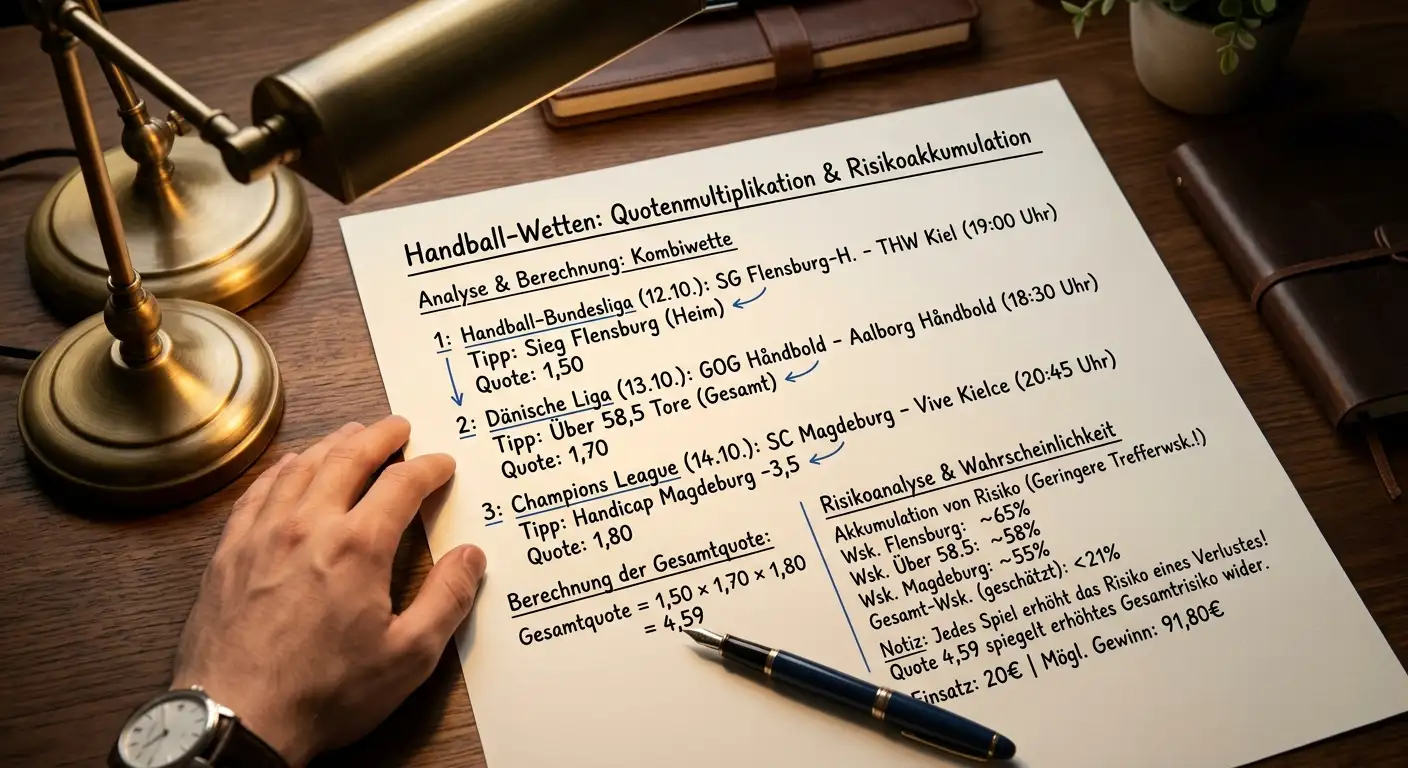 Handball-Wetten: Quotenmultiplikation & Risikoakkumulation
Analyse & Berechnung: Kombiwette
1: Handball-Bundesliga (12.10.): SG Flensburg-H. - THW Kiel (19:00 Uhr)
Tipp: Sieg Flensburg (Heim)
Quote: 1,50
2: Dänische Liga (13.10.): GOG Håndbold - Aalborg Håndbold (18:30 Uhr)
Tipp: Über 58,5 Tore (Gesamt)
Quote: 1,70
3: Champions League (14.10.): SC Magdeburg - Vive Kielce (20:45 Uhr)
Tipp: Handicap Magdeburg -3,5
Quote: 1,80
Berechnung der Gesamtquote:
Gesamtquote = 1,50 × 1,70 × 1,80
= 4,59
Risikoanalyse & Wahrscheinlichkeit
Akkumulation von Risiko (Geringere Trefferwsk.!)
Wsk. Flensburg: ~65%
Wsk. Über 58.5: ~58%
Wsk. Magdeburg: ~55%
Gesamt-Wsk. (geschätzt): <21%
Notiz: Jedes Spiel erhöht das Risiko eines Verlustes!
Quote 4,59 spiegelt erhöhtes Gesamtrisiko wider.
Einsatz: 20€ | Mögl. Gewinn: 91,80€